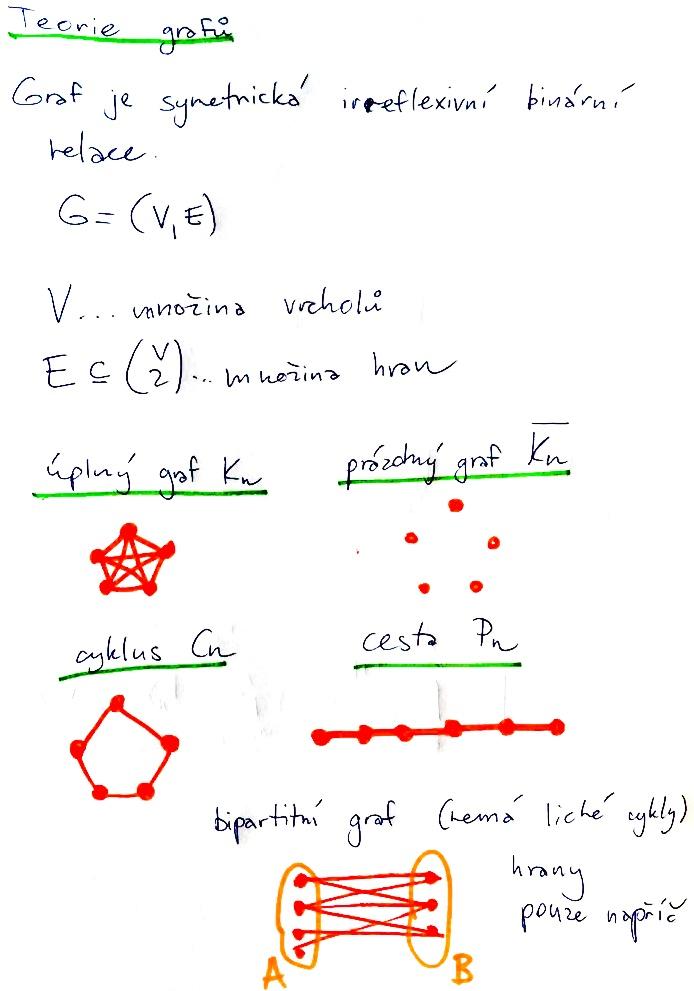 Teorie grafů
Graf je symetrická ireflexivní binární
relace.
G = (V, E)
V... množina vrcholů
E ⊆ (V 2)... množina hran
úplný graf Kn
prázdný graf K̅n̅
cyklus Cn
cesta Pn
bipartitní graf (nemá liché cykly)
hrany
pouze napříč
A
B